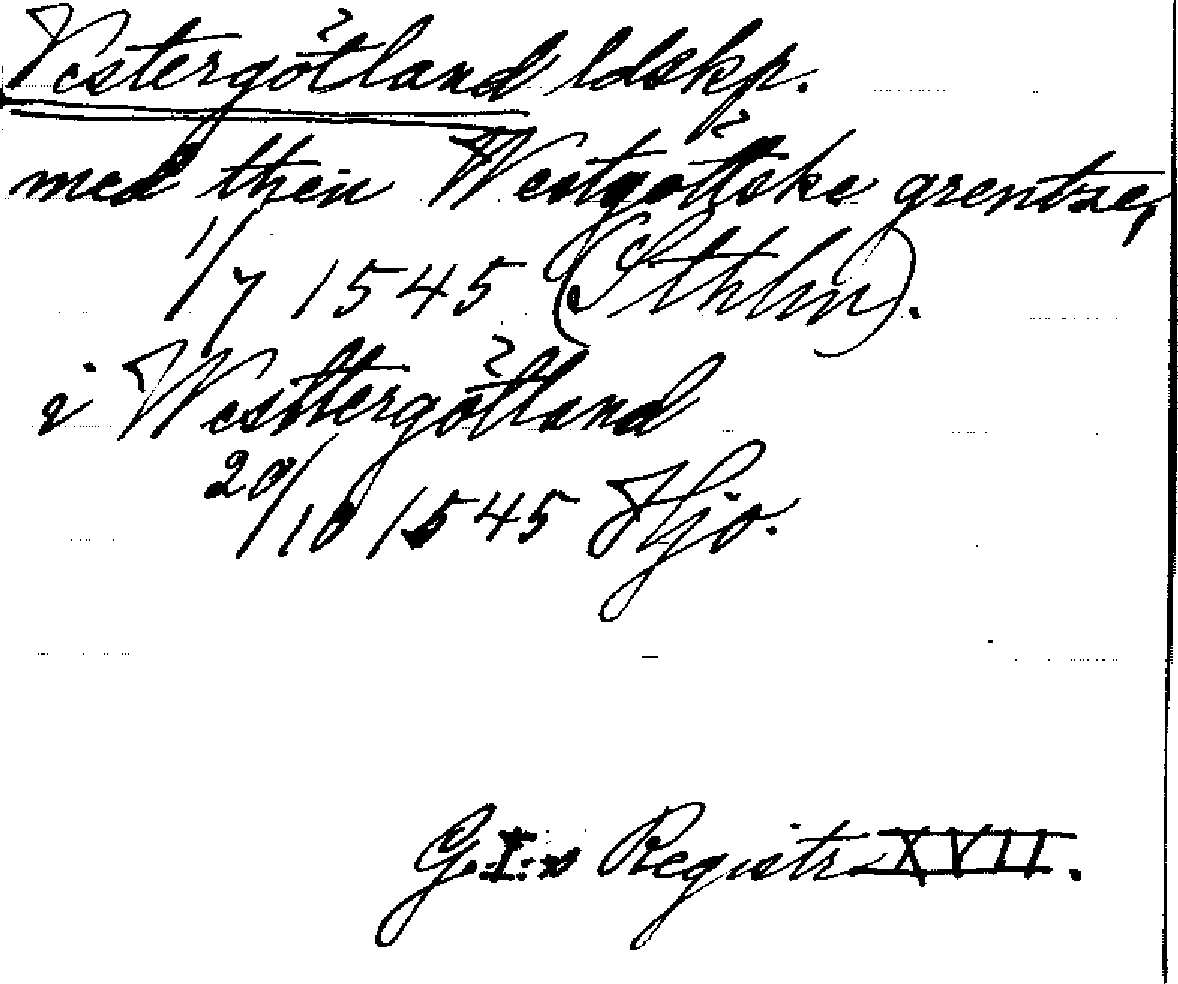 Vestergötland ldskp.
med then Westgötske grentze,
1/7 1545 (Sthlm).
i Westtergötland
20/10 1545 Hjo.
G. I:s Registr. XVII.